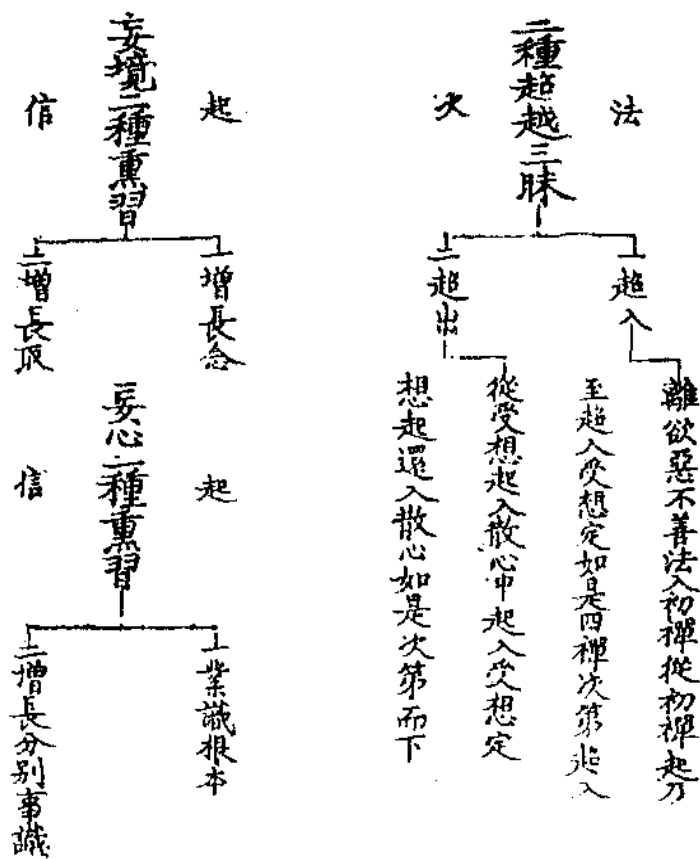 法
二種超越三昧
次
一超入
離欲惡不善法入初禪從初禪起乃
至超入受想定如是四禪次第超入
二超出
從受想起入散心中起入受想定
想起還入散心如是次第而下
起
妄境二種熏習
信
一增長念
二增長取
起
妄心二種熏習
信
一業識根本
二增長分別事識